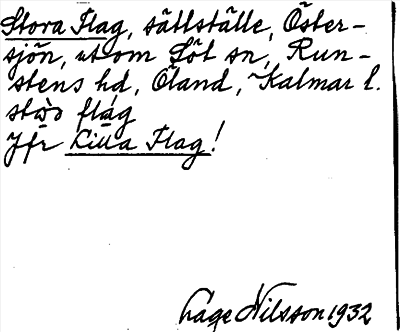 Stora Flag, sällställe, Öster-
sjön, ut om Löt sn, Run-
stens hd, Öland, Kalmar l.
flág
Jfr Lilla Flag!
Lage Nilsson 1932